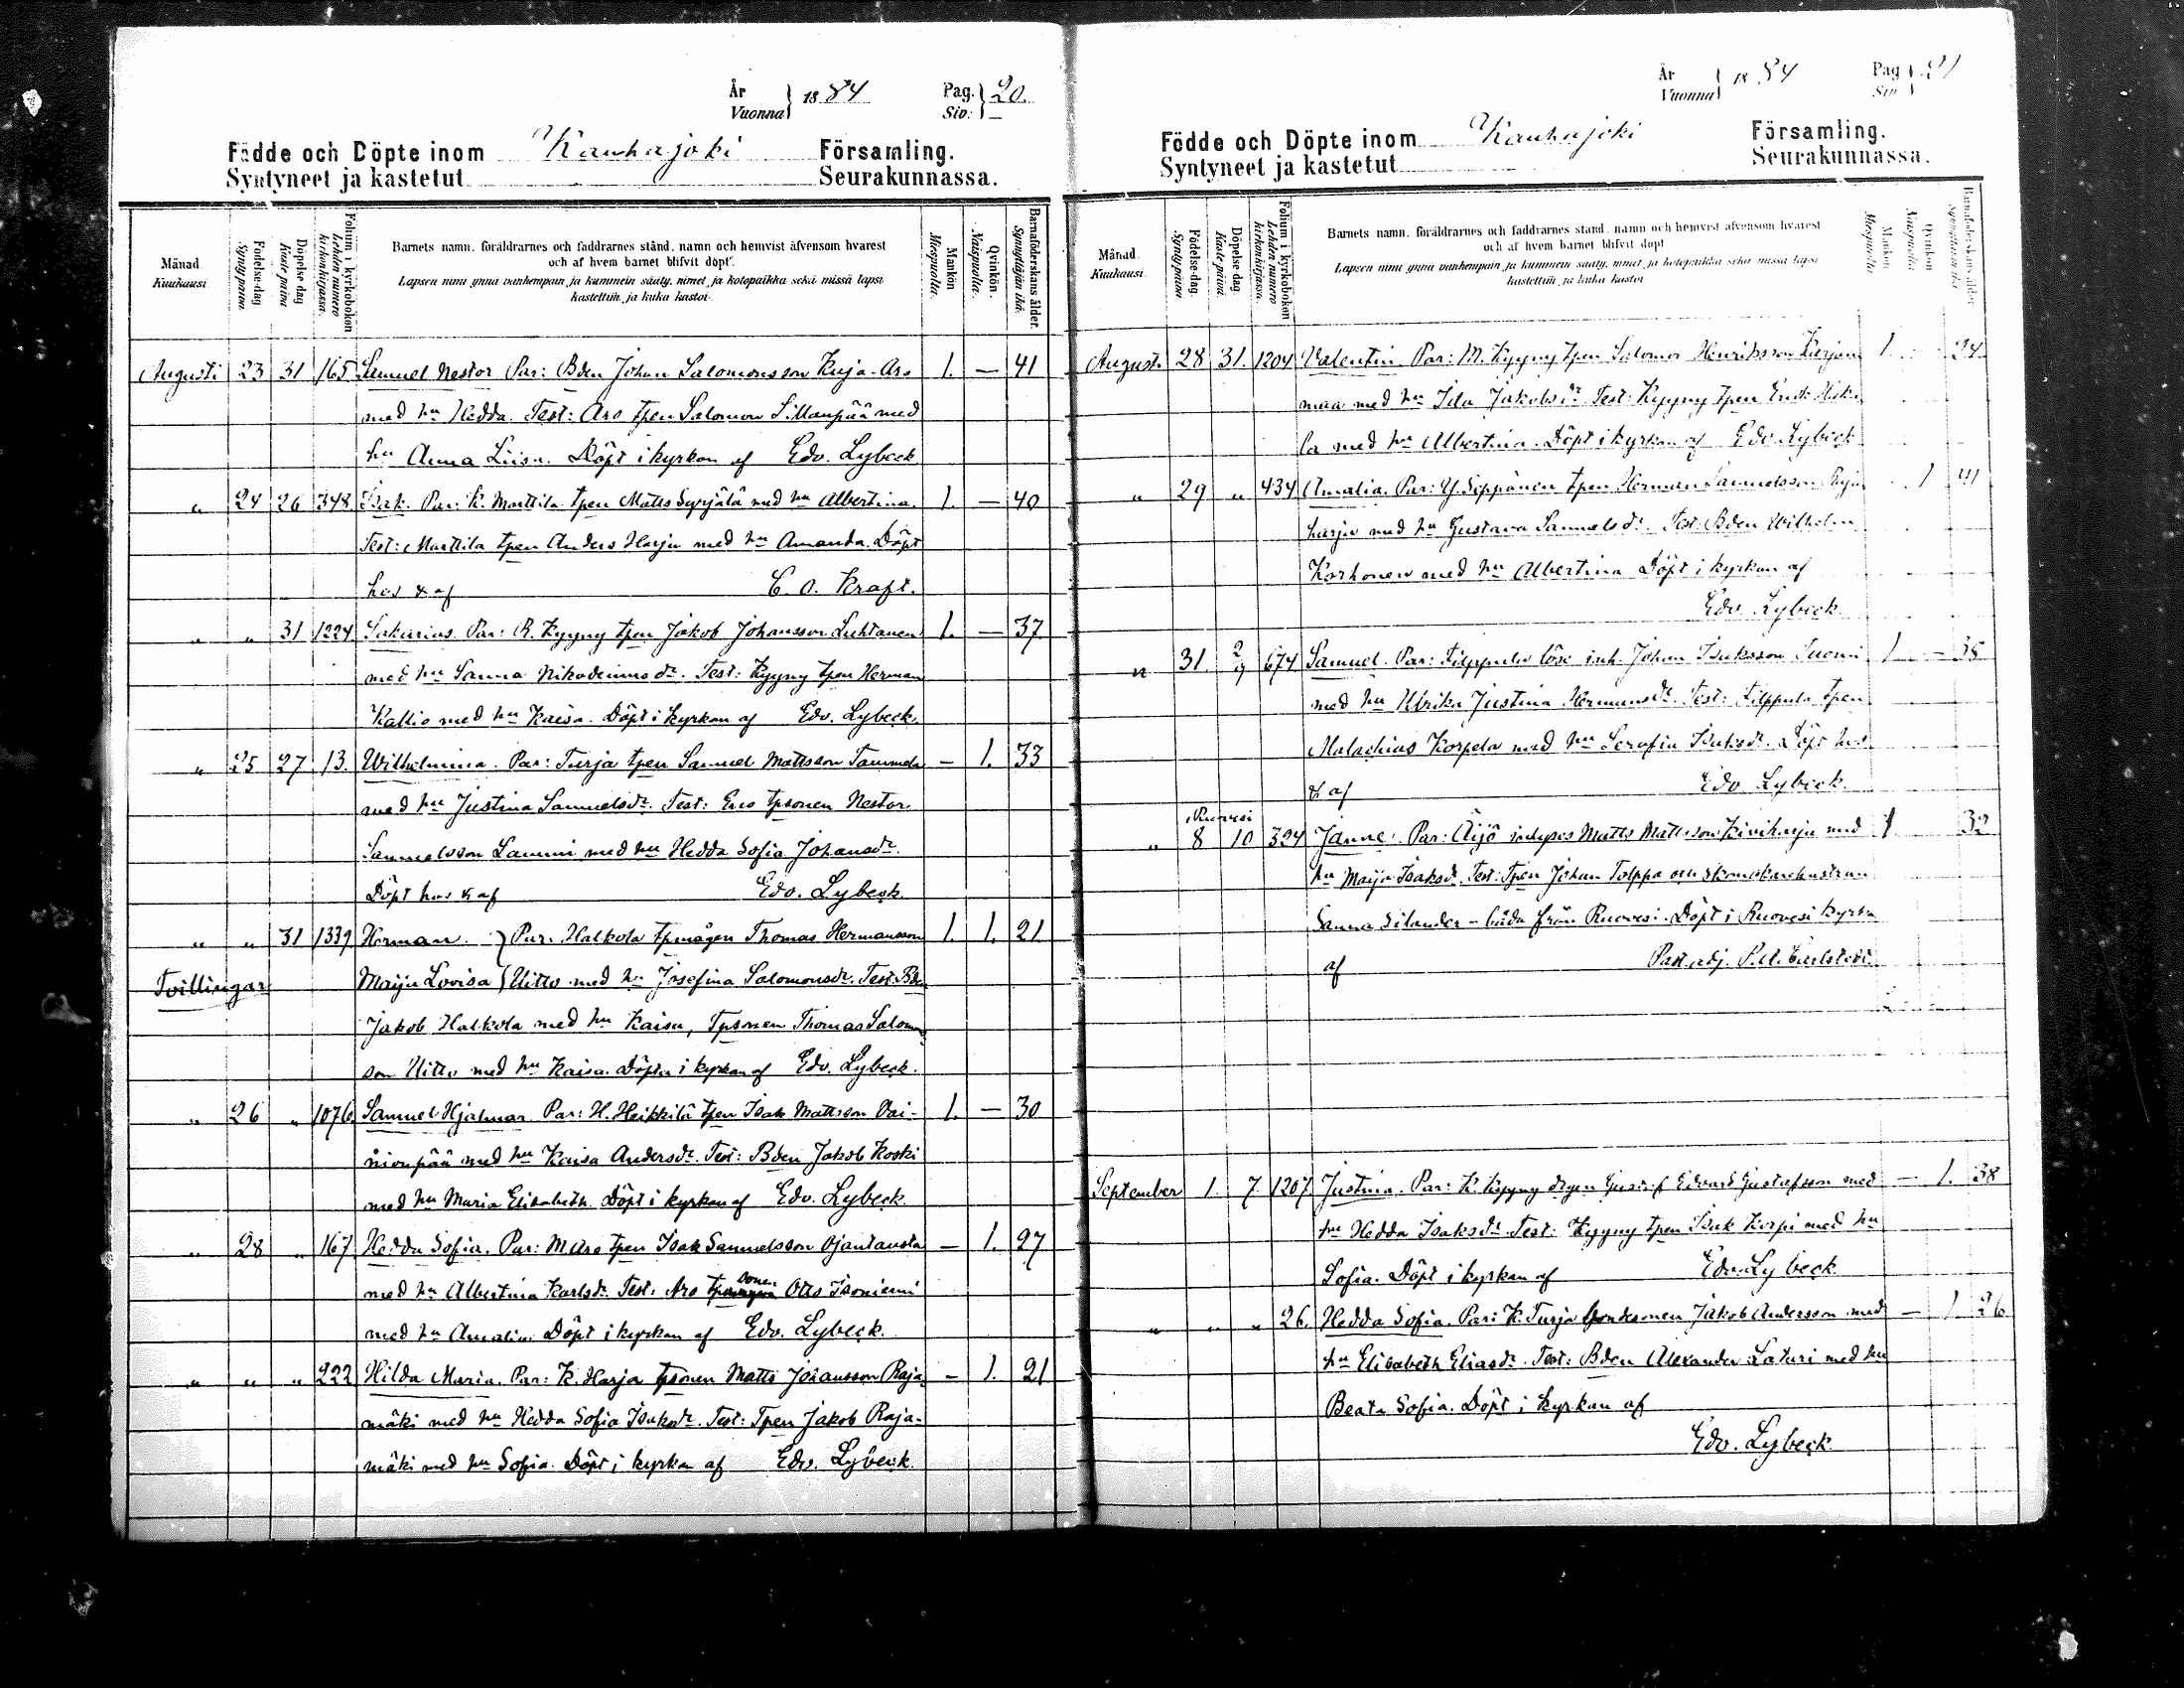 År
Vuonna
1884
Pag. 20.
Siv:
Födde och Döpte inom Kauhajoki Församling.
Syntyneet ja kastetut Seurakunnassa.
Månad
Kuukausi
Födelse-dag.
Synty-päinä.
Döpelse-dag
Kaste-päinä
Folium i kyrkobokon
Lehden numero kirkonkirjassa.
Barnets namn, föräldrarnes och faddrarnes stånd, namn och hemvist äfvensom hvarest
och af hvem barnet blifvit döpt.
Lapsen nimi ynnä vanhempain ja kummein sääty, nimet ja kotopaikka sekä missä lapsi
kastettiin ja kuka kastoi.
Mankön
Miespuolia.
Qvinkön.
Naispuolia.
Barnaföderskans ålder.
Synnyttäjän ikä.
Augusti 23 31 165 Samuel Nestor Par: Bden Johan Salomonsson Kuja-Aro 1. — 41
med hu Hedda. Test: Aro tpen Salomon Sillanpää med
hu Anna Liisa. Döpt i kyrkan af Edv. Lybeck
" 24 26 348 Isak. Par: K. Marttila tpen Matts Syrjälä med hu Albertina. 1. — 40
Test: Marttila tpen Anders Harju med hu Amanda. Döpt
hos & af C. O. Kraft.
" " 31 1224 Sakarias. Par: R. Kyyny tpen Jakob Johansson Luhtanen 1. — 37
med hu Sanna Nikodemusdr. Test: Kyyny tpen Herman
Kallio med hu Kaisa. Döpt i kyrkan af Edv. Lybeck.
" 25 27 13. Wilhelmina. Par: Turja tpen Samuel Mattsson Tammela — 1. 33
med hu Justina Samuelsdr. Test: Ero tpsonen Nestor
Samuelsson Lammi med hu Hedda Sofia Johansdr.
Döpt hos & af Edv. Lybeck.
" " 31 1339 Herman. } Par: Halkola tpmågen Thomas Hermansson 1. 1. 21
Tvillingar Maija Lovisa } Uitto med hu Josefina Salomonsdr. Test: Bde
Jakob Halkola med hu Kaisa, Tpsonen Thomas Salomon
son Uitto med hu Kaisa. Döpta i kyrkan af Edv. Lybeck.
" 26 " 1076. Samuel Hjalmar. Par: H. Heikkilä tpen Isak Mattsson Vai- 1. — 30
nionpää med hu Kaisa Andersdr. Test: Bden Jakob Koski
med hu Maria Elisabeth. Döpt i kyrkan af Edv. Lybeck
" 28 " 167 Hedda Sofia. Par: M Aro tpen Isak Samuelsson Ojantausta — 1. 27
med hu Albertina Karlsdr. Test: Aro tp sonen Otto Isoniemi
med hu Amalia. Döpt i kyrkan af Edv. Lybeck.
" " " 222 Hilda Maria. Par: K. Harja tpsonen Matts Johansson Raja- — 1. 21
mäki med hu Hedda Sofia Isaksdr. Test: Tpen Jakob Raja-
mäki med hu Sofia. Döpt i kyrkan af Edv. Lybeck.
År
Vuonna
1884
Pag 21
Siv
Födde och Döpte inom Kauhajoki Församling.
Syntyneet ja kastetut Seurakunnassa.
Månad
Kuukausi
Födelse-dag.
Synty-päinä
Döpelse-dag.
Kaste-päinä.
Folium i kyrkobokon
Lehden numero kirkonkirjassa.
Barnets namn, föräldrarnes och faddrarnes stånd, namn och hemvist äfvensom hvarest
och af hvem barnet blifvit döpt
Lapsen nimi ynnä vanhempain ja kummein sääty, nimet ja kotopaikka sekä missä lapsi
kastettiin ja kuka kastoi
Mankön
Miespuolia
Qvinkön
Naispuolia
Barnaföderskans ålder
Synnyttäjän ikä
August. 28 31. 1204 Valentin Par: M. Kyyny tpen Salomon Henriksson Karjan 1 24
maa med hu Ida Jakobsdr Test: Kyyny tpen Erik Hiki
la med hu Albertina. Döpt i kyrkan af Edv. Lybeck
" 29 " 434 Amalia. Par: Y. Sippånen tpen Herman Samuelsson 1 41
harju med hu Gustava Samuelsdr. Test: Bden Wilhelm
Korhonen med hu Albertina Döpt i kyrkan af
Edv. Lybeck.
" 31. 2/9 674 Samuel. Par: Filppula löse inh. Johan Isaksson Tuomi 1 — 35
med hu Ulrika Justina Hermansdr. Test: Filppula tpen
Malachias Korpela med hu Serafia Isaksdr. Döpt hos
& af Edv Lybeck.
Ruovesi
" 8 10 324 Janne. Par: Äijö inhyses Matts Mattsson Kiviharju med 1 32
hu Maija Isaksdr. Test: Tpen Johan Tolppa och skomakarehustrun
Sanna Silander - båda från Ruovesi. Döpt i Ruovesi kyrka
af Past. adj. P. A. Carlstedt.
September 1 7 1207 Justina. Par: K. Kyyny Gustaf Edvard Gustafsson med — 1. 38
hu Hedda Isaksdr. Test: Kyyny tpen Isak Korpi med hu
Sofia. Döpt i kyrkan af Edv. Lybeck
" " " 26. Hedda Sofia. Par: K. Turja bondesonen Jakob Andersson med — 1 26
hu Elisabeth Eliasdr. Test: Bden Alexander Laturi med hu
Beata Sofia. Döpt i kyrkan af
Edv. Lybeck.